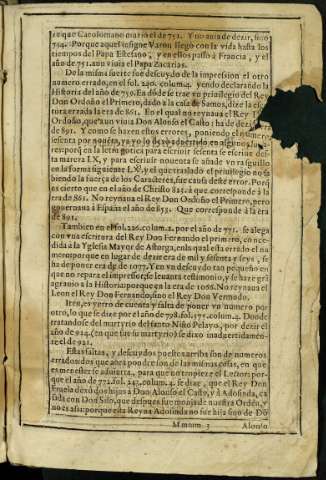 ze que Carolomano murió el de 751. Y
754. Porque aquel insigne Varon llegó con la vida hasta los
tiempos del Papa Estefano, y en estos passó à Francia, y el
año de 751. aun viuia el Papa Zacarias.
De la misma suerte fue descuydo de la impression el otro
numero errado, en el fol. 240. colum. 4. yendo declarando la
Historia del año de 759. En dõde se trae vn priuilegio del Rey
Don Ordoño el Primero, dado à la casa de Samos, dize la es-
tura errada la era de 861. En el qual no reynaua el Rey D.
Ordoño, que aun viuia Don Alonso el Casto: ha de dezir
de 891. Y como se hazen estos errores, poniendo el numero
sesenta por nouẽta, ya yo lo dexo aduertido en
resporq̃ en la letra gotica para escriuir sesenta se escriue des-
ta manera LX, y para escriuir nouenta se añade vn rasguillo
en la forma siguiente LX', y el que traslado el priuilegio no sa-
biendo la fuerça de los Caracteres, fue causa deste error. Porq̃
es cierto que en el año de Christo 823. à que corresponde à la
era de 861. No reynaua el Rey Don Ordoño el Primero, pero
gouernaua à España el año de 853. Que corresponde à la era
de 891.
Tambien en el fol. 226. colum. 2. por el año de 751. se alega
con vna escritura del Rey Don Fernando el primero, conce-
dida à la Yglesia Mayor de Astorga, en la qual esta errado el nu-
mero porque en lugar de dezir era de mil y sesenta y seys, se
ha de poner era de 1077. Y en vn descuydo tan pequeño en
que no repara el impressor, se leuanta testimonio, y se haze grã
agrauio à la Historia: porque en la era de 1066. No reynaua en
Leon el Rey Don Fernando, sino el Rey Don Vermudo.
Item, es yerro de cuenta y falta de poner vn numero por
otro, lo que se dize por el año de 798. fol. 371. colum. 4. Donde
tratandose del martyrio del santo Niño Pelayo, por dezir el
año de 924. (en que fue su martyrio) se dixo inaduertidamen-
te, el de 921.
Estas faltas, y descuydos puestos arriba son de numeros
errados: dos que aora pondre son de las mismas cosas, en que
tambien es bien se aduierta, para que no tropieze el Lector: por-
que el año de 772. fol. 247. colum. 4. se dize, que el Rey Don
Fruela dexò dos hijos à Don Alonso el Casto, y à Adosinda, ca-
sada con Don Silo, que despues fue monja de nuestra Orden, y
no es assi: porque esta Reyna Adosinda no fue hija sino de Dõ
Mmmm 3 Alonso